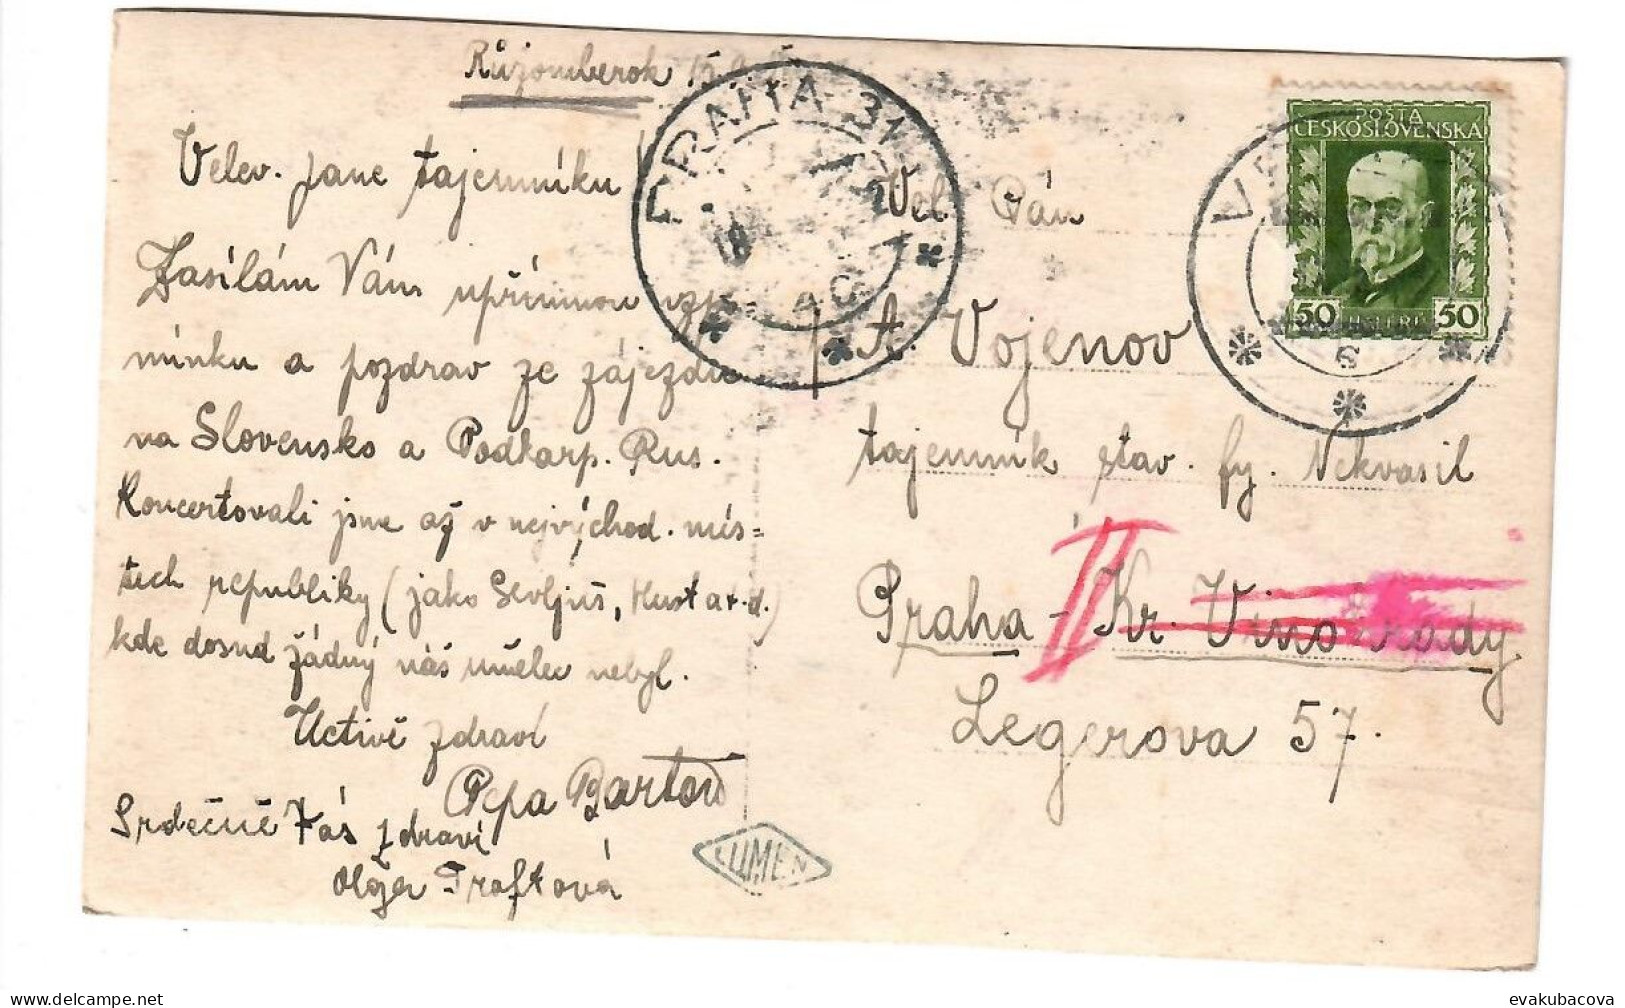 Růžomberok 15.
Velev. pane tajemníku
Zasílám Vám upřímnou vzpo
mínku a pozdrav ze zájezdu
na Slovensko a Podkarp. Rus.
Koncertovali jsme až v nejvýchod. mís=
tech republiky (jako Sevljuš, Hust a t.d.)
kde dosud žádný náš umělec nebyl.
Uctivě zdraví
Pepa Bartoň
Srdečně Vás zdraví
Olga Traftová
LUMEN
PRAHA 31
18
4C
POŠTA
ČESKOSLOVENSKÁ
50 HALÉŘŮ 50
6
Vel. Pán
A. Vojenov
tajemník stav. fy. Nekvasil
Praha - II Kr. Vinohrady
Legerova 57.
evakubacova